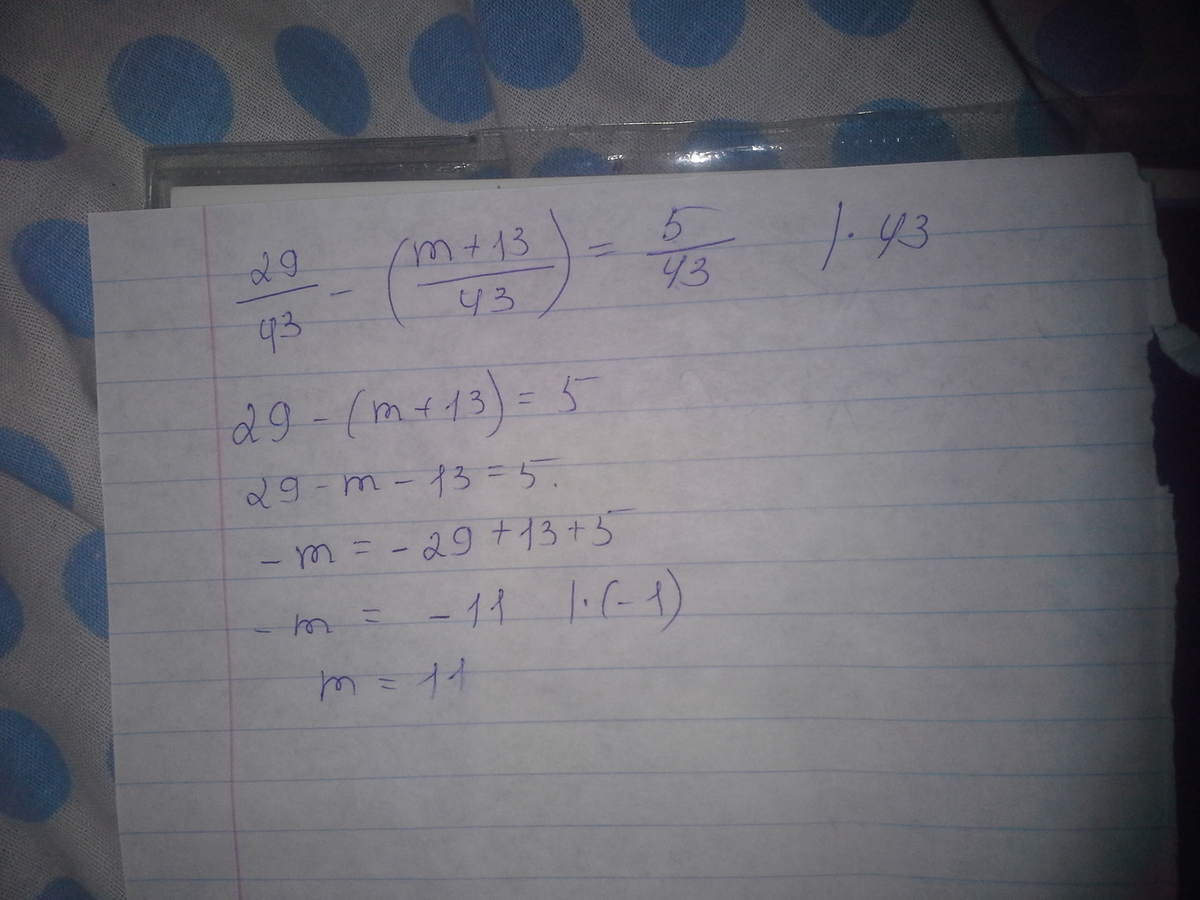 29/43 - (m + 13/43) = 5/43 |· 43
29 - (m + 13) = 5
29 - m - 13 = 5.
- m = - 29 + 13 + 5
- m = - 11 |· (- 1)
m = 11